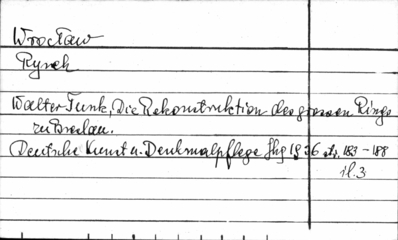 Wrocław
Rynek
Walter Tunk, Die Rekonstruktion des grossen Rings
zu Breslau.
Deutsche Kunst u. Denkmalpflege Jhg 1936 str. 183-188
il. 3